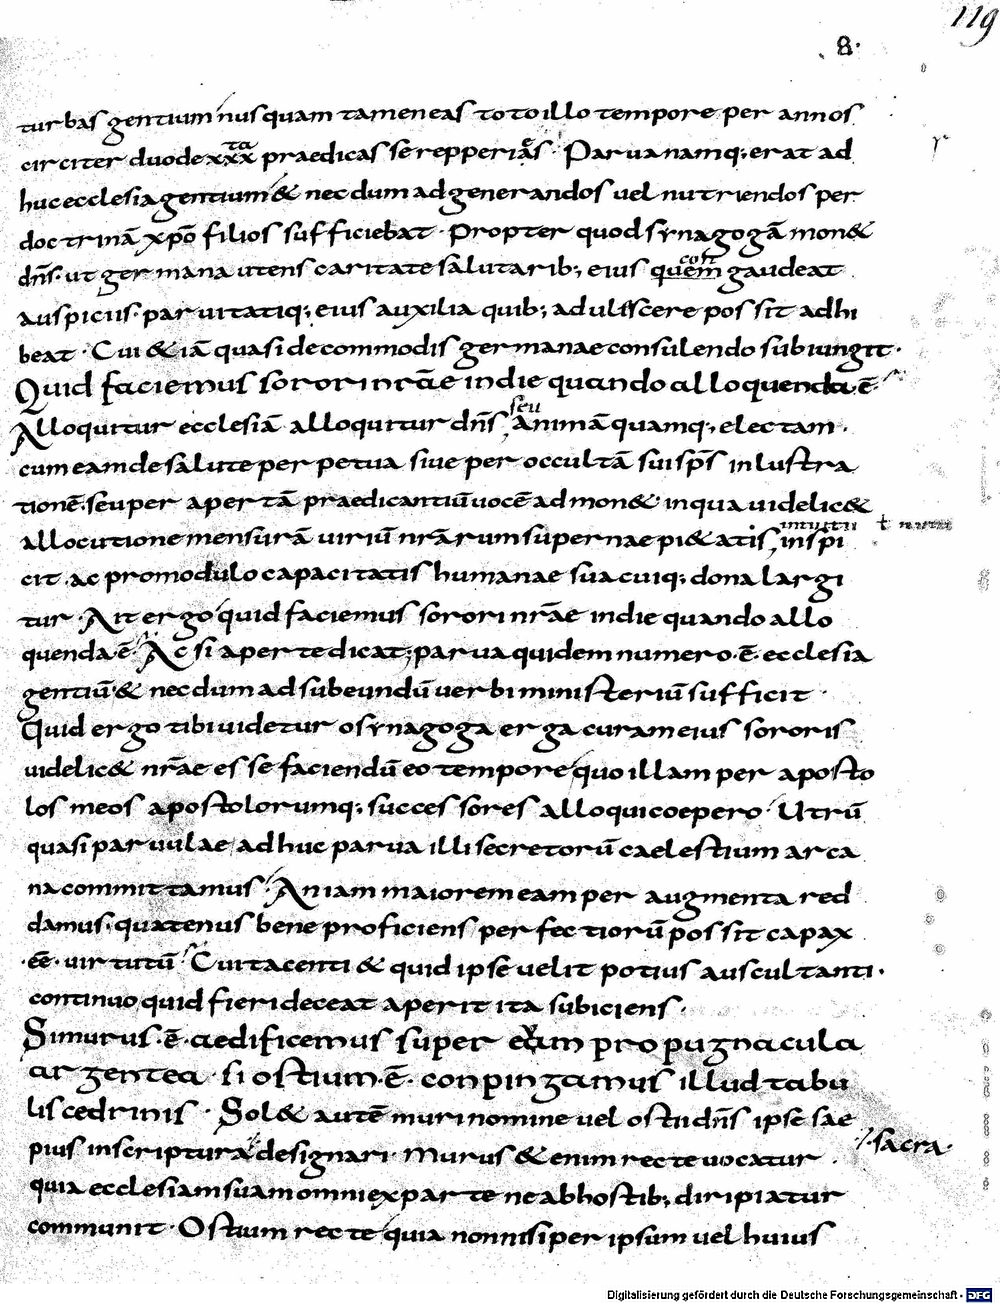 119
8.
turbas gentium nusquam tamen eas toto illo tempore per annos
circiter duodexxx praedicasse repperias. Parua namq; erat ad
huc ecclesia gentium & necdum ad generandos uel nutriendos per
doctrinā xp̄o filios sufficiebat. Propter quod synagogā mon&
dn̄s. ut germana utens caritate salutarib; eius quem gaudeat
auspiciis. paruitatiq; eius auxilia quib; adulescere possit adhi
beat. Cui & iā quasi de commodis germanae consulendo subiungit.
Quid faciemus sorori nr̄ae in die quando alloquenda ē.
Alloquitur ecclesiā alloquitur dn̄s, seu animā quamq; electam.
cum eam de salute perpetua siue per occultā sui sp̄s inlustra
tionē. seu per apertā praedicantiū uocē admon& in qua uidelic&
allocutione mensurā uiriū nr̄arum supernae pi&atis, intuitu inspi
cit. ac pro modulo capacitatis humanae sua cuiq; dona largi
tur. Ait ergo quid faciemus sorori nr̄ae in die quando allo
quenda ē. Ac si aperte dicat; parua quidem numero ē ecclesia
gentiū & necdum ad subeundū uerbi ministeriū sufficit.
Quid ergo tibi uidetur o synagoga erga curam eius sororis
uidelic& nr̄ae esse faciendū eo tempore quo illam per aposto
los meos apostolorumq; successores alloqui coepero. Utrū
quasi paruulae adhuc parua illi secretorū caelestium arca
na committamus. An iam maiorem eam per augmenta red
damus. quatenus bene proficiens perfectiorū possit capax
ēē uirtutū. Cui tacenti & quid ipse uelit potius auscultanti.
continuo quid fieri deceat aperit ita subiciens.
Si murus ē. aedificemus super eum propugnacula
argentea. si ostium ē. conpingamus illud tabu
lis cedrinis. Sol& autē muri nomine uel ostii dn̄s ipse sae
pius in scriptura designari. Murus & enim recte uocatur. sacra.
quia ecclesiam suam omni ex parte ne ab hostib; diripiatur
communit. Ostium recte quia non nisi per ipsum uel huius
Digitalisierung gefördert durch die Deutsche Forschungsgemeinschaft - DFG